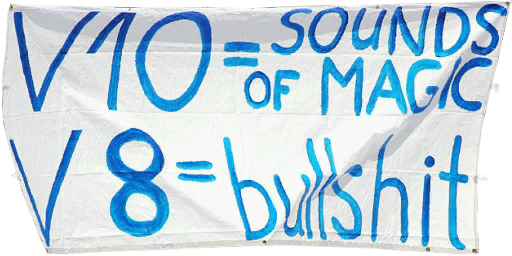 V10 = SOUNDS
OF MAGIC
V8 = bullshit